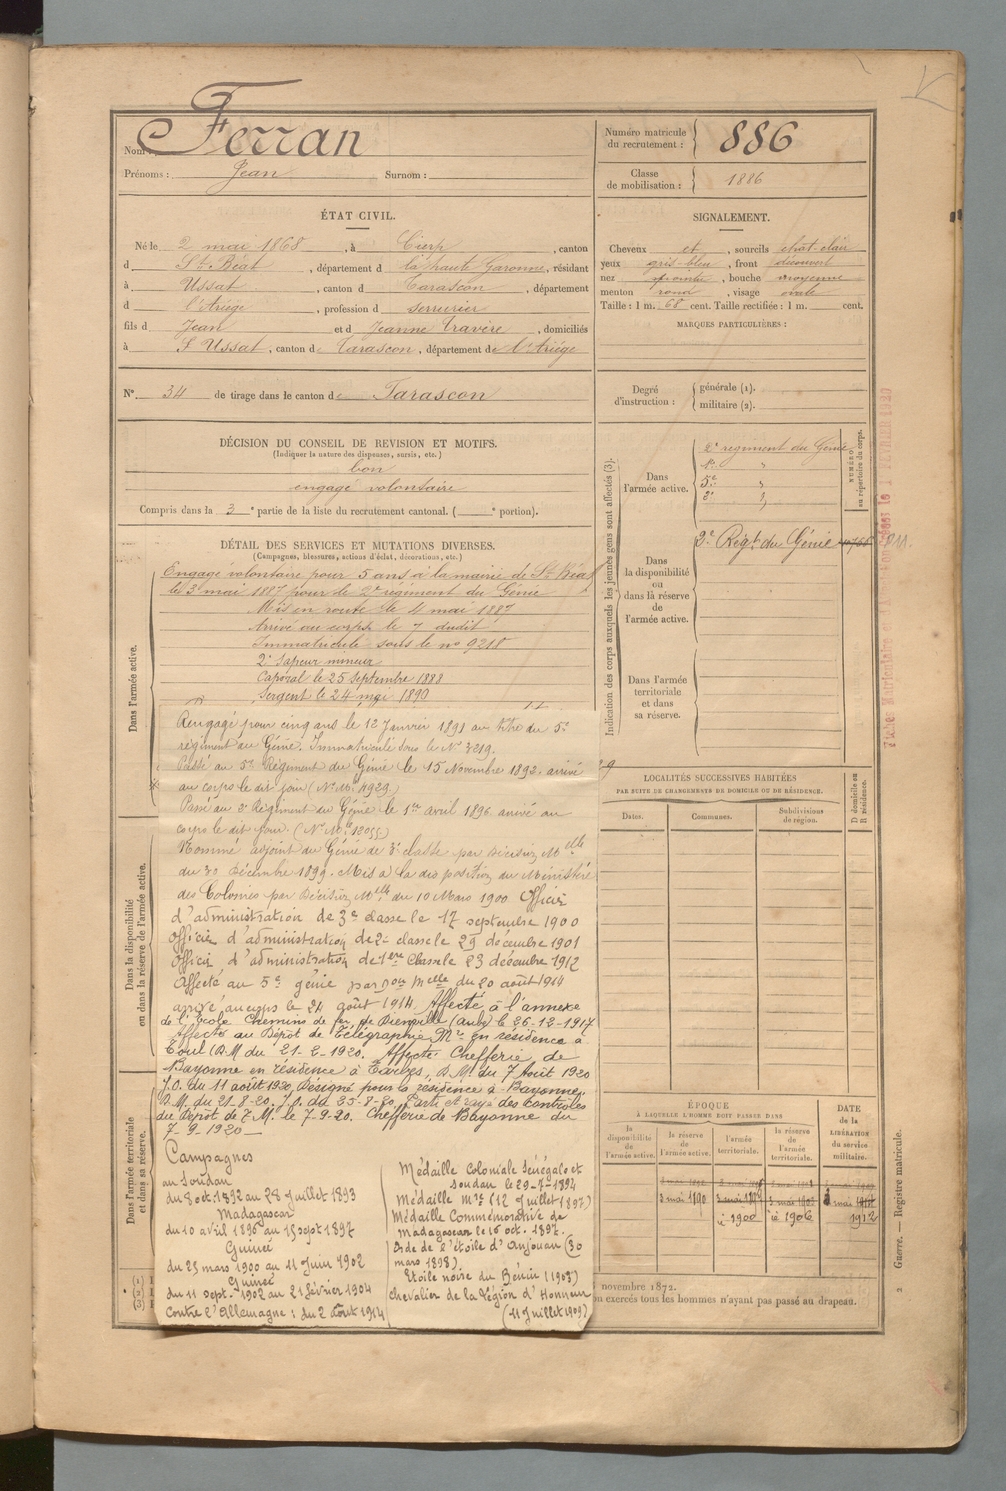 Nom : Ferran
Prénoms : Jean Surnom :
Numéro matricule du recrutement : 886
Classe de mobilisation : 1886
ÉTAT CIVIL.
Né le 2 mai 1868, à Cierp, canton
d St Béat, département d la haute Garonne, résidant
à Ussat, canton d Tarascon, département
d l'Ariège, profession d serrurier
fils d Jean et d Jeanne Travère, domiciliés
à Ussat, canton de Tarascon, département de l'Ariège
N° 34 de tirage dans le canton de Tarascon
SIGNALEMENT.
Cheveux et, sourcils chat-clair
yeux gris-bleu, front découvert
nez, bouche moyenne
menton rond, visage ovale
Taille : 1 m. 68 cent. Taille rectifiée : 1 m. cent.
MARQUES PARTICULIÈRES :
Degré d'instruction : générale (1).
militaire (2).
DÉCISION DU CONSEIL DE REVISION ET MOTIFS.
(Indiquer la nature des dispenses, sursis, etc.)
bon
engagé volontaire
Compris dans la 3e partie de la liste du recrutement cantonal. ( e portion).
DÉTAIL DES SERVICES ET MUTATIONS DIVERSES.
(Campagnes, blessures, actions d'éclat, décorations, etc.)
Dans l'armée active.
Engagé volontaire pour 5 ans à la mairie de St Béat
le 3 mai 1887 pour le 2e régiment du Génie
Mis en route le 4 mai 1887
Arrivé au corps le 7 dudit
Immatriculé sous le no 9218
2e Sapeur mineur
Caporal le 25 Septembre 1888
Sergent le 24 mai 1890
Rengagé pour cinq ans le 12 Janvier 1891 au titre du 5e
régiment du Génie. Immatriculé sous le No 3219.
Passé au 5e Régiment du Génie le 15 Novembre 1892. arrivé
au corps le dit jour (No Mle 4929)
Passé au 2e Régiment du Génie le 1er avril 1896 arrivé au
corps le dit jour. (No Mle 12055)
Nommé adjoint du Génie de 3e classe par Décision Mlle
du 30 Décembre 1899. Mis à la disposition du Ministère
des Colonies par Décision Mlle du 10 Mars 1900 Officier
d'administration de 3e classe le 17 septembre 1900
Officier d'administration de 2e classe le 29 décembre 1901
Officier d'administration de 1ère Classe le 23 décembre 1912
Affecté au 5e génie par Don Melle du 20 août 1914
arrivé au corps le 24 août 1914. Affecté à l'annexe
de l'Ecole Chemins de fer de Brienville (aube) le 26-12-1917
Affecté au Dépôt de Télégraphie Mre en résidence à
Toul (D.M. du 21-2-1920. Affecté Chefferie de
Bayonne en résidence à Tarbes, D.M. du 7 Août 1920
J.O. du 11 août 1920, Désigné pour la résidence à Bayonne,
D.M. du 21-8-20. J.O. du 25-8-20. Parti et rayé des contrôles
du Dépôt de T.M. le 7-9-20. Chefferie de Bayonne du
7-9-1920
Campagnes
au Soudan
du 8 oct. 1892 au 28 Juillet 1893
Madagascar
du 10 avril 1896 au 15 sept 1897
Guinée
du 25 mars 1900 au 11 Juin 1902
Guinée
du 11 sept. 1902 au 21 février 1904
Contre l'Allemagne : du 2 août 1914
Médaille Coloniale Sénégal et
Soudan le 29-7-1894
Médaille Mre (12 Juillet 1897)
Médaille Commémorative de
Madagascar le 16 oct. 1897.
Ordre de l'étoile d'Anjouan (30
mars 1898).
Etoile noire du Bénin (1903)
Chevalier de la Légion d'Honneur
(11 Juillet 1909)
Dans la disponibilité ou dans la réserve de l'armée active.
Dans l'armée territoriale et dans sa réserve.
(1)
(2)
(3)
Indication des corps auxquels les jeunes gens sont affectés (3).
Dans l'armée active.
2e régiment du Génie
5e "
2e "
NUMÉRO au répertoire du corps.
Dans la disponibilité ou dans la réserve de l'armée active.
2e Régt du Génie
Dans l'armée territoriale et dans sa réserve.
LOCALITÉS SUCCESSIVES HABITÉES
PAR SUITE DE CHANGEMENTS DE DOMICILE OU DE RÉSIDENCE.
Dates. Communes. Subdivisions de région.
D domicile ou R résidence.
ÉPOQUE
À LAQUELLE L'HOMME DOIT PASSER DANS
la disponibilité de l'armée active. la réserve de l'armée active. l'armée territoriale. la réserve de l'armée territoriale.
DATE de la LIBÉRATION du service militaire.
3 mai 1890
1900
1906
1912
novembre 1872.
exercés tous les hommes n'ayant pas passé au drapeau.
Guerre. — Registre matricule.
2